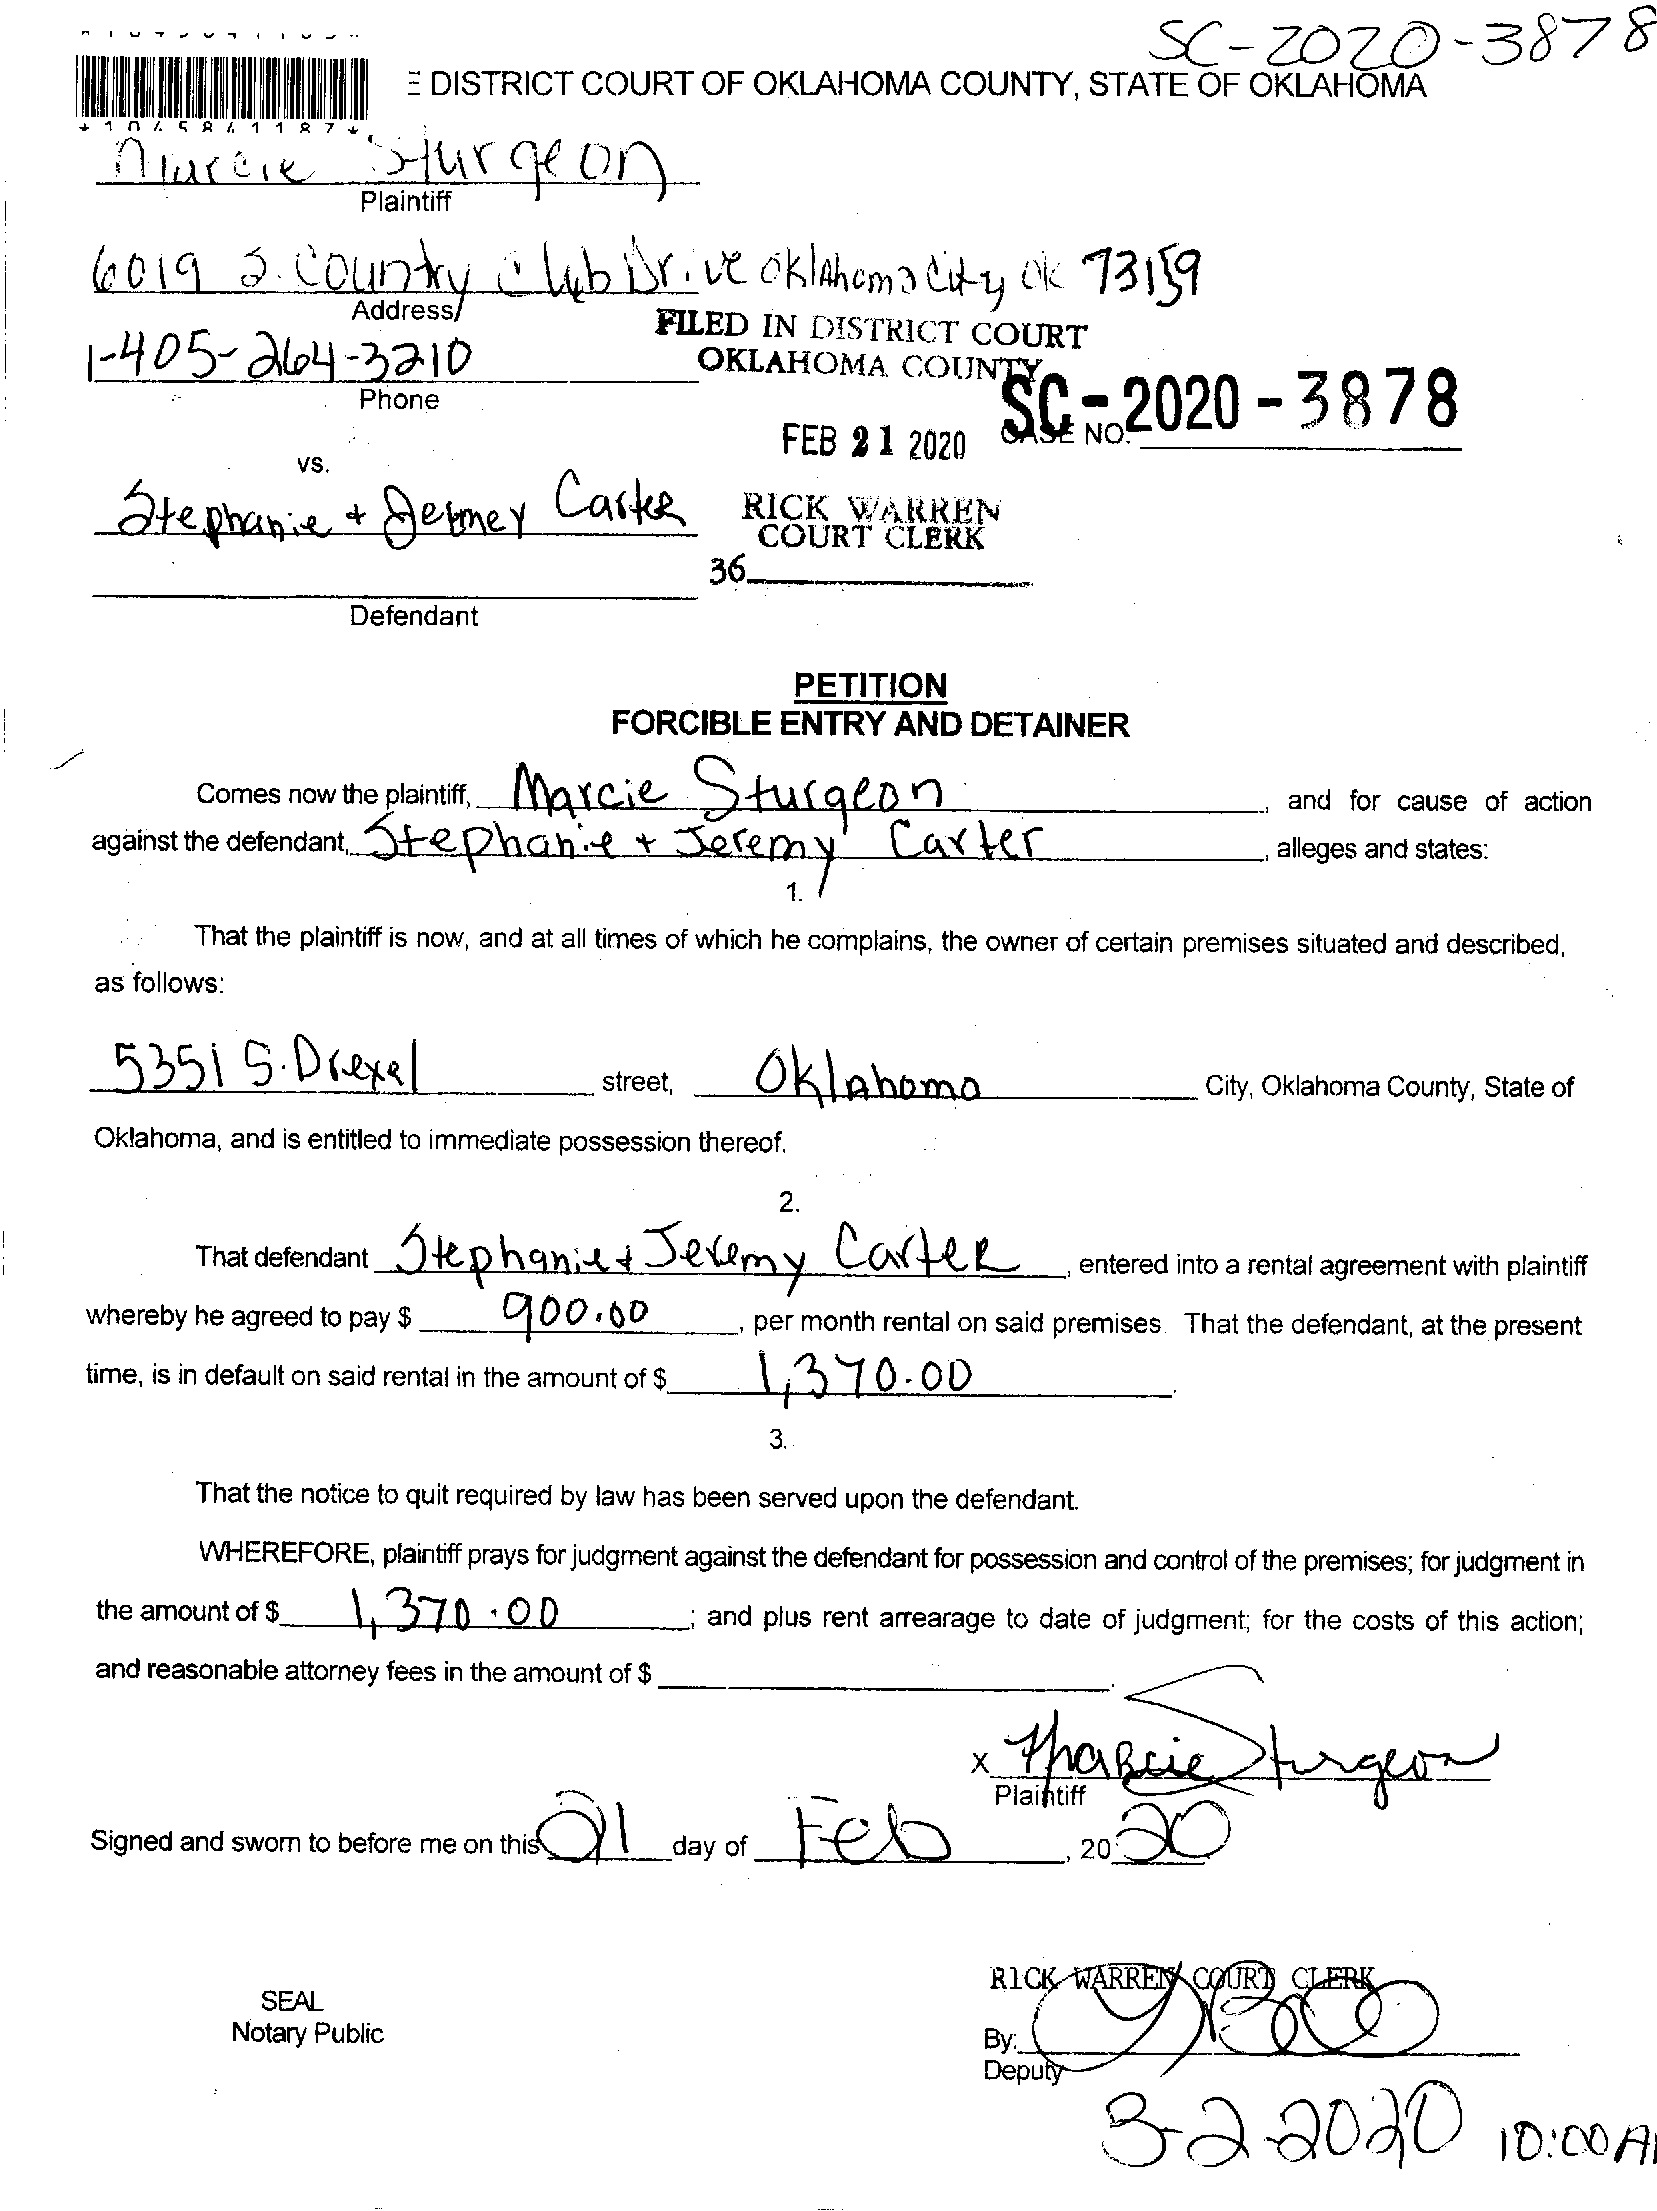 SC-2020-3878
E DISTRICT COURT OF OKLAHOMA COUNTY, STATE OF OKLAHOMA
*1045841187*
Marcie Sturgeon
Plaintiff
6019 S. Country Club Drive Oklahoma City OK 73159
Address
FILED IN DISTRICT COURT
OKLAHOMA COUNTY
1-405-264-3210
Phone
SC-2020-3878
CASE NO.
FEB 21 2020
vs.
Stephanie + Jeremy Carter
RICK WARREN
COURT CLERK
36
Defendant
PETITION
FORCIBLE ENTRY AND DETAINER
Comes now the plaintiff, Marcie Sturgeon, and for cause of action
against the defendant, Stephanie + Jeremy Carter, alleges and states:
1.
That the plaintiff is now, and at all times of which he complains, the owner of certain premises situated and described,
as follows:
5351 S. Drexel street, Oklahoma City, Oklahoma County, State of
Oklahoma, and is entitled to immediate possession thereof.
2.
That defendant Stephanie + Jeremy Carter, entered into a rental agreement with plaintiff
whereby he agreed to pay $ 900.00, per month rental on said premises. That the defendant, at the present
time, is in default on said rental in the amount of $ 1,370.00.
3.
That the notice to quit required by law has been served upon the defendant.
WHEREFORE, plaintiff prays for judgment against the defendant for possession and control of the premises; for judgment in
the amount of $ 1,370.00; and plus rent arrearage to date of judgment; for the costs of this action;
and reasonable attorney fees in the amount of $ .
x Marcie Sturgeon
Plaintiff
Signed and sworn to before me on this 21 day of Feb, 2020
RICK WARREN COURT CLERK
SEAL
Notary Public
By:
Deputy
3-2-2020 10:00 A